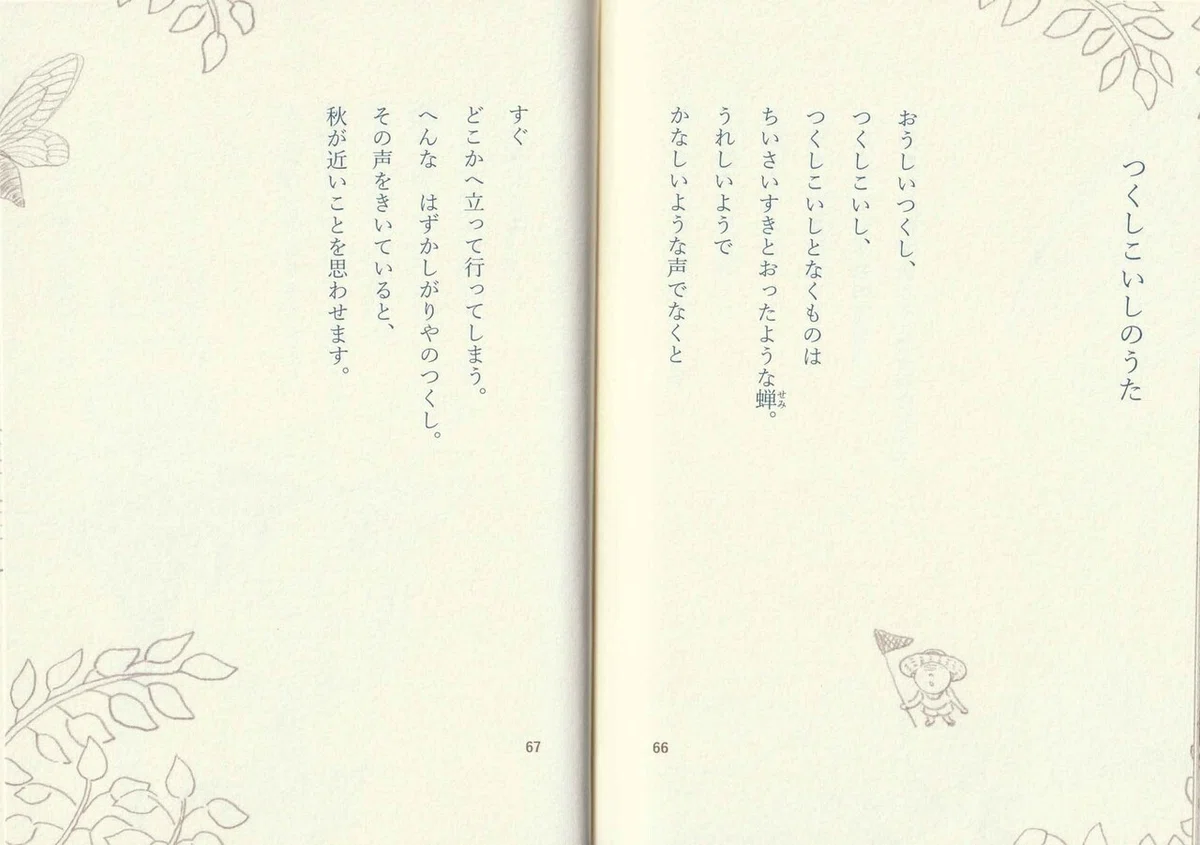 つくしこいしのうた
おうしいつくし、
つくしこいし、
つくしこいしとなくものは
ちいさいすきとおったような蝉。
せみ
うれしいようで
かなしいような声でなくと
66
すぐ
どこかへ立って行ってしまう。
へんな　はずかしがりやのつくし。
その声をきいていると、
秋が近いことを思わせます。
67